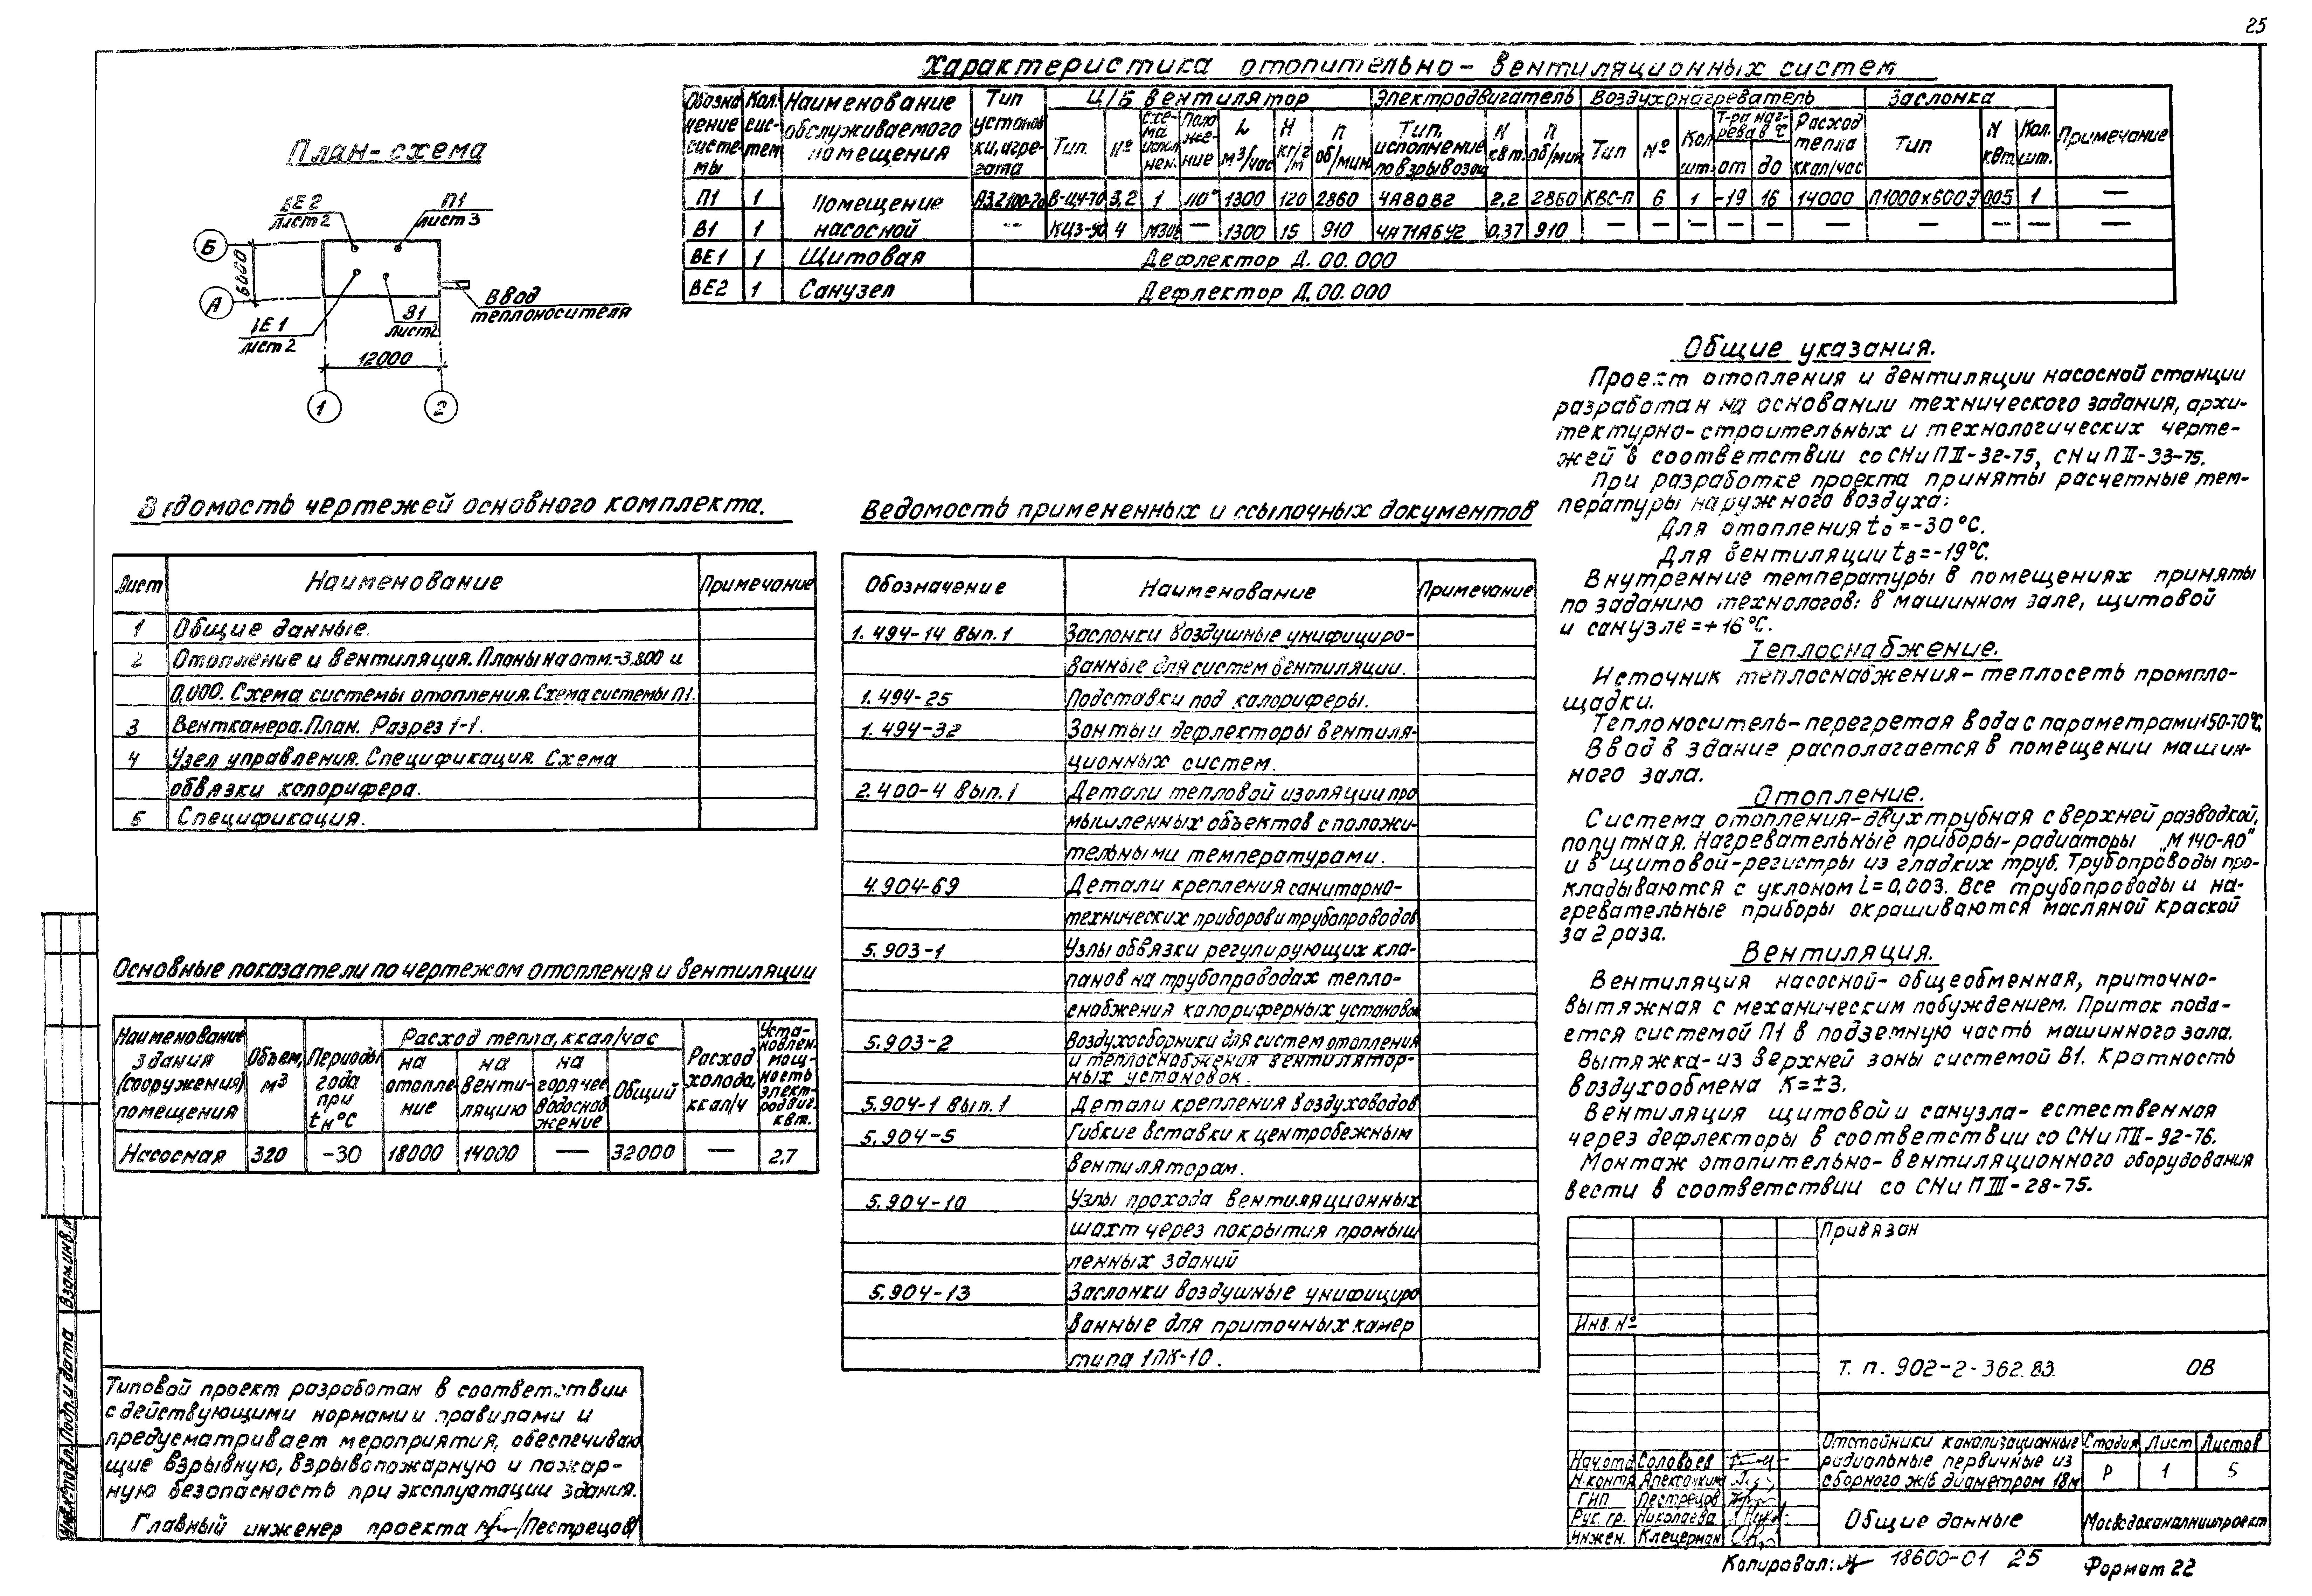 25
Характеристика отопительно-вентиляционных систем
Обозначение системы
Кол. систем
Наименование обслуживаемого помещения
Тип установки, агрегата
Ц/Б вентилятор
Электродвигатель
Воздухонагреватель
Заслонка
Примечание
Тип. № Схема исполнен. Положение L м³/час H кг/м² n об/мин
Тип, исполнение по взрывозащ N квт. n об/мин
Тип № Кол. шт. Т-ра нагрева в °С от до Расход тепла ккал/час
Тип N квт. Кол. шт.
П1 1 Помещение А3.2100-2а В-Ц4-70 3,2 1 Л0° 1300 120 2860 4А80В2 2,2 2860 КВС-П 6 1 -19 16 14000 П1000х600Э 0,05 1 —
В1 1 насосной — КЦ3-90 4 — 1300 15 910 4А71А6У2 0,37 910 — — — — — — — — — —
ВЕ1 1 Щитовая Дефлектор Д.00.000
ВЕ2 1 Санузел Дефлектор Д.00.000
План-схема
ВЕ2
лист 2
П1
лист 3
Б
А
6000
ВЕ1
лист 2
В1
лист 2
Ввод
теплоносителя
12000
1
2
Ведомость чертежей основного комплекта.
Лист Наименование Примечание
1 Общие данные.
2 Отопление и вентиляция. Планы на отм. -3,800 и
0,000. Схема системы отопления. Схема системы П1.
3 Венткамера. План. Разрез 1-1.
4 Узел управления. Спецификация. Схема
обвязки калорифера.
5 Спецификация.
Основные показатели по чертежам отопления и вентиляции
Наименование здания (сооружения) помещения
Объем, м³
Периоды года при tн °С
Расход тепла, ккал/час
на отопление
на вентиляцию
на горячее водоснабжение
Общий
Расход холода, ккал/ч
Установлен. мощность электродвиг. квт.
Насосная 320 -30 18000 14000 — 32000 — 2,7
Ведомость примененных и ссылочных документов
Обозначение Наименование Примечание
1.494-14 Вып.1 Заслонки воздушные унифициро-
ванные для систем вентиляции.
1.494-25 Подставки под калориферы.
1.494-32 Зонты и дефлекторы вентиля-
ционных систем.
2.400-4 Вып.1 Детали тепловой изоляции про
мышленных объектов с положи-
тельными температурами.
4.904-69 Детали крепления санитарно-
технических приборов и трубопроводов
5.903-1 Узлы обвязки регулирующих кла-
панов на трубопроводах тепло-
снабжения калориферных установок
5.903-2 Воздухосборники для систем отопления
и теплоснабжения вентилятор-
ных установок.
5.904-1 Вып.1 Детали крепления воздуховодов
5.904-5 Гибкие вставки к центробежным
вентиляторам.
5.904-10 Узлы прохода вентиляционных
шахт через покрытия промыш
ленных зданий
5.904-13 Заслонки воздушные унифициро
ванные для приточных камер
типа 1ПК-10.
Общие указания.
Проект отопления и вентиляции насосной станции
разработан на основании технического задания, архи-
тектурно-строительных и технологических черте-
жей в соответствии со СНиП II-32-75, СНиП II-33-75.
При разработке проекта приняты расчетные тем-
пературы наружного воздуха:
Для отопления to = -30°С.
Для вентиляции tв = -19°С.
Внутренние температуры в помещениях приняты
по заданию технологов: в машинном зале, щитовой
и санузле = +16°С.
Теплоснабжение.
Источник теплоснабжения-теплосеть промпло-
щадки.
Теплоноситель-перегретая вода с параметрами 150-70°С.
Ввод в здание располагается в помещении машин-
ного зала.
Отопление.
Система отопления-двухтрубная с верхней разводкой,
попутная. Нагревательные приборы-радиаторы „М 140-АО"
и в щитовой-регистры из гладких труб. Трубопроводы про-
кладываются с уклоном i=0,003. Все трубопроводы и на-
гревательные приборы окрашиваются масляной краской
за 2 раза.
Вентиляция.
Вентиляция насосной-общеобменная, приточно-
вытяжная с механическим побуждением. Приток пода-
ется системой П1 в подземную часть машинного зала.
Вытяжка-из верхней зоны системой В1. Кратность
воздухообмена К=±3.
Вентиляция щитовой и санузла-естественная
через дефлекторы в соответствии со СНиП II-92-76.
Монтаж отопительно-вентиляционного оборудования
вести в соответствии со СНиП III-28-75.
Типовой проект разработан в соответствии
с действующими нормами и правилами и
предусматривает мероприятия, обеспечиваю
щие взрывную, взрывопожарную и пожар-
ную безопасность при эксплуатации здания.
Главный инженер проекта /Пестрецов/
Инв.№подл. Подп. и дата Взам.инв.№
Привязан
Инв. №
Т. п. 902-2-362.83. ОВ
Нач.отд Соловьев
Н.контр
ГИП Пестрецов
Рук. гр. Николаева
Инжен. Клецерман
Отстойники канализационные
радиальные первичные из
сборного ж/б диаметром 18м
Стадия Лист Листов
Р 1 5
Общие данные
Мосводоканалниипроект
Копировал: 18600-01 25 Формат 22